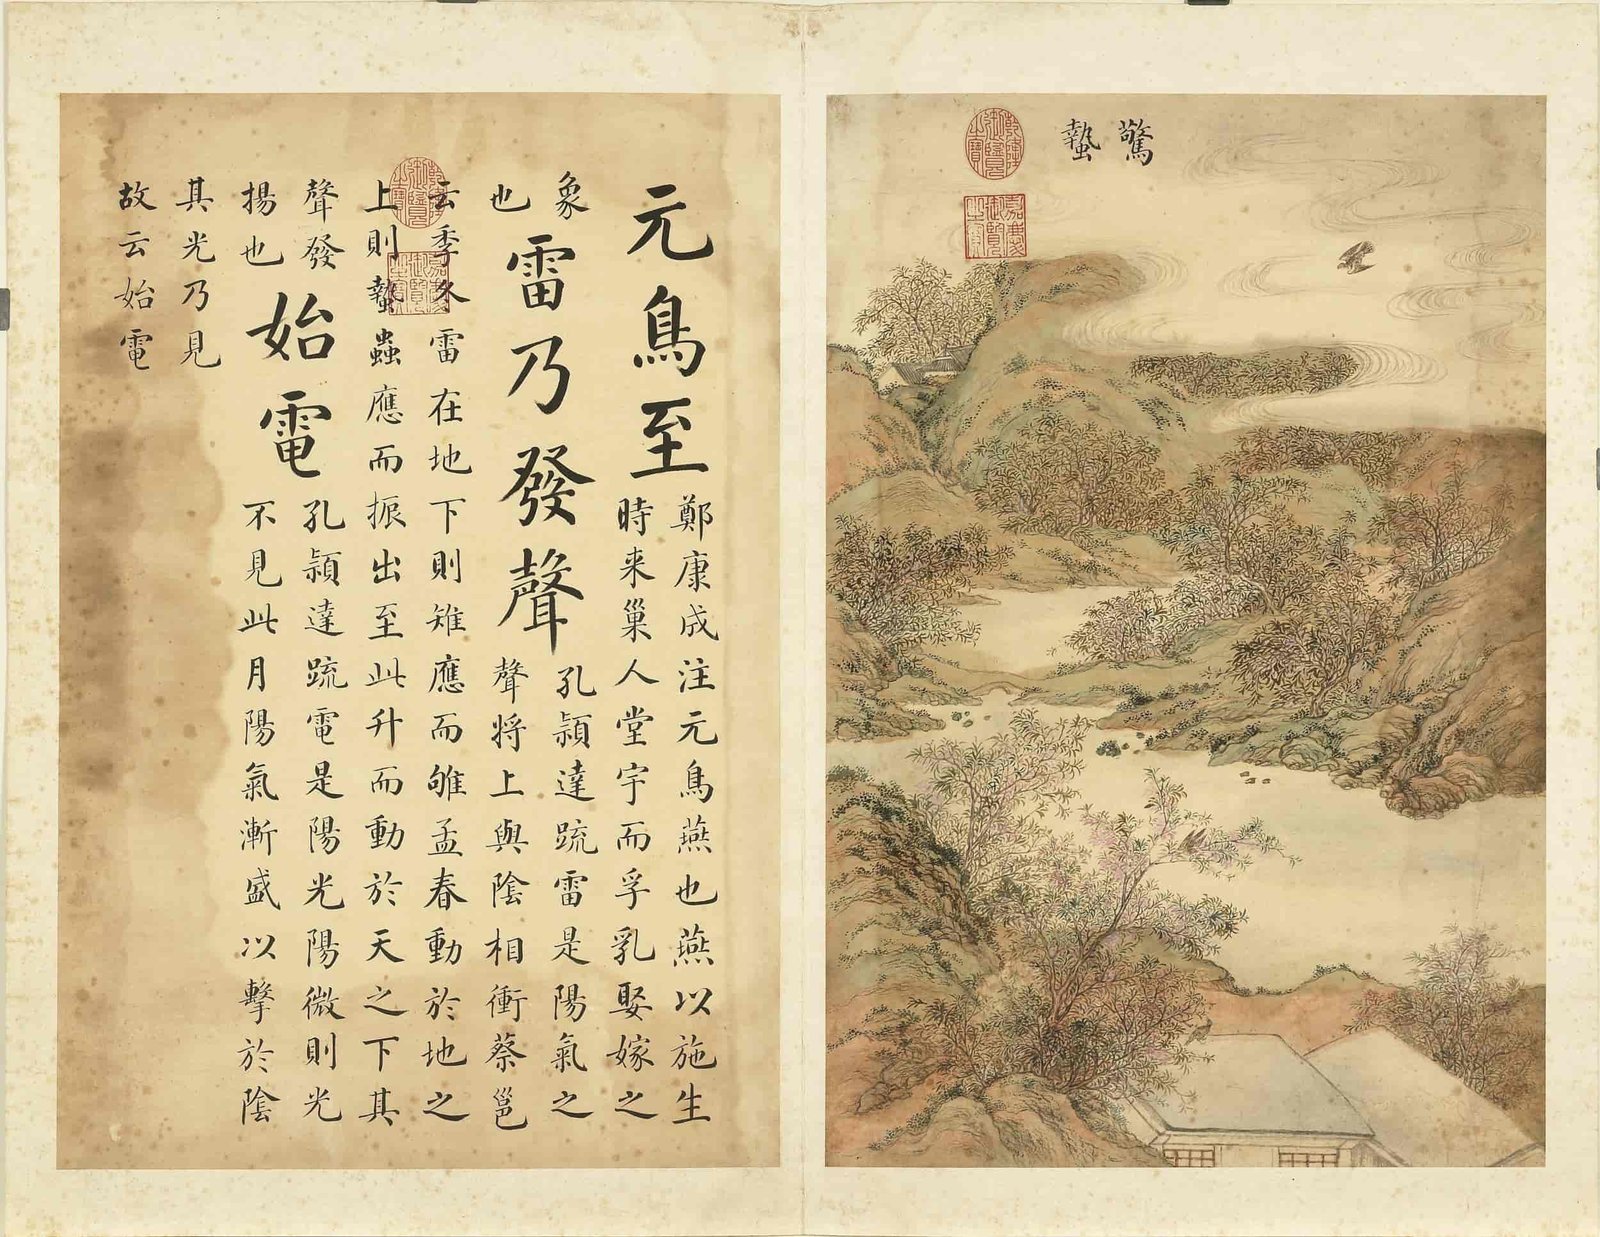 驚
蟄
乾隆御覽之寶
嘉慶御覽之寶
元鳥至
鄭康成注元鳥燕也燕以施生
時来巢人堂宇而孚乳娶嫁之
象
也
雷乃發聲
孔頴達疏雷是陽氣之
聲將上與陰相衝蔡邕
云季冬雷在地下則雉應而雊孟春動於地之
上則蟄蟲應而振出至此升而動於天之下其
聲發
揚也
始電
孔頴達疏電是陽光陽微則光
不見此月陽氣漸盛以擊於陰
其光乃見
故云始電
乾隆御覽之寶
嘉慶御覽之寶